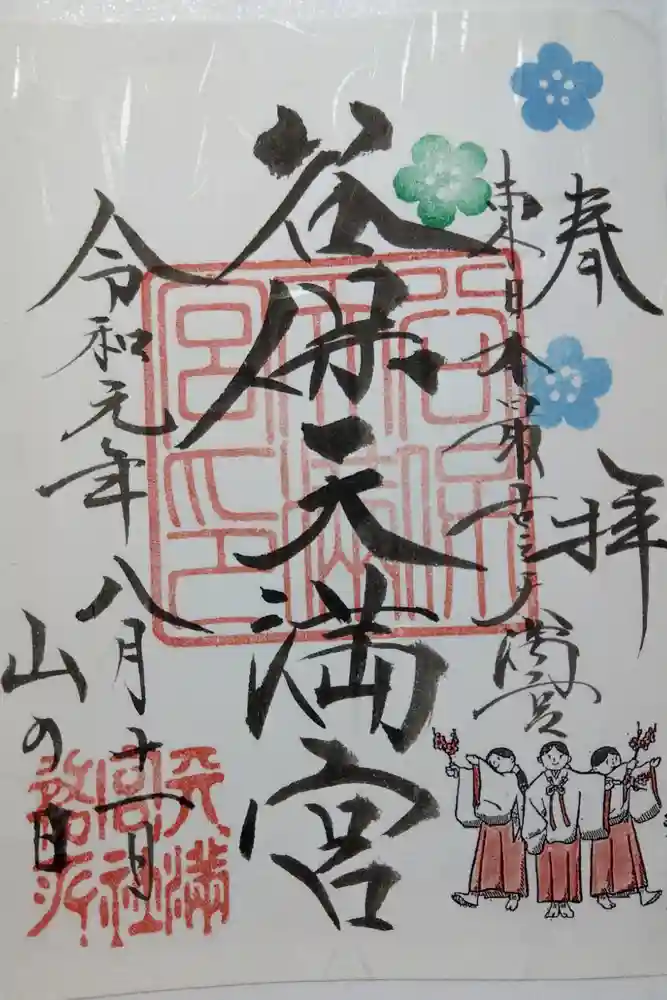 奉拝
東日本最古之天満宮
谷保天満宮
令和元年八月十一日
山の日
谷保天満宮之印
天満宮社務所